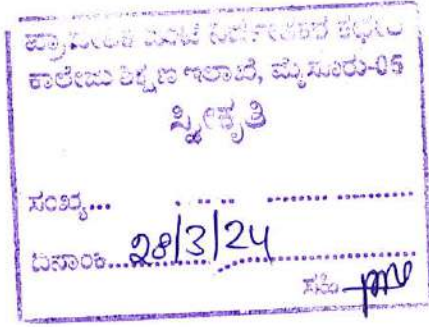 ಪ್ರಾದೇಶಿಕ ಜಂಟಿ ನಿರ್ದೇಶಕರ ಕಛೇರಿ
ಕಾಲೇಜು ಶಿಕ್ಷಣ ಇಲಾಖೆ, ಮೈಸೂರು-05
ಸ್ವೀಕೃತಿ
ಸಂಖ್ಯೆ...
ದಿನಾಂಕ....28/3/24
ಸಹಿ